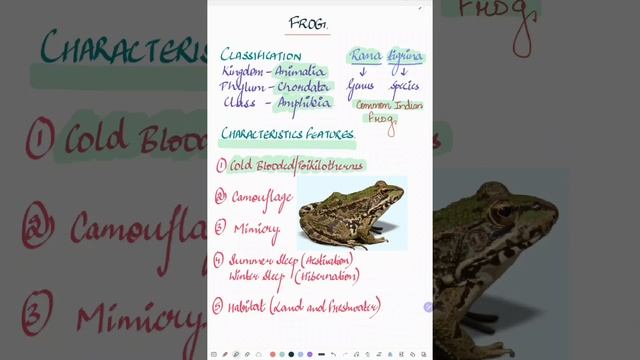 FROG.
CLASSIFICATION
Kingdom - Animalia
Phylum - Chordata
Class - Amphibia
Rana tigrina
Genus Species
Common Indian
FROG.
CHARACTERISTICS FEATURES
① Cold Blooded/Poikilotherms
② Camouflage
③ Mimicry
④ Summer Sleep (Aestivation)
Winter Sleep (Hibernation)
⑤ Habitat (Land and freshwater)
CHARACTERIS
① COLD BLOO
② Camoufla
③ Mimicry
FROG.